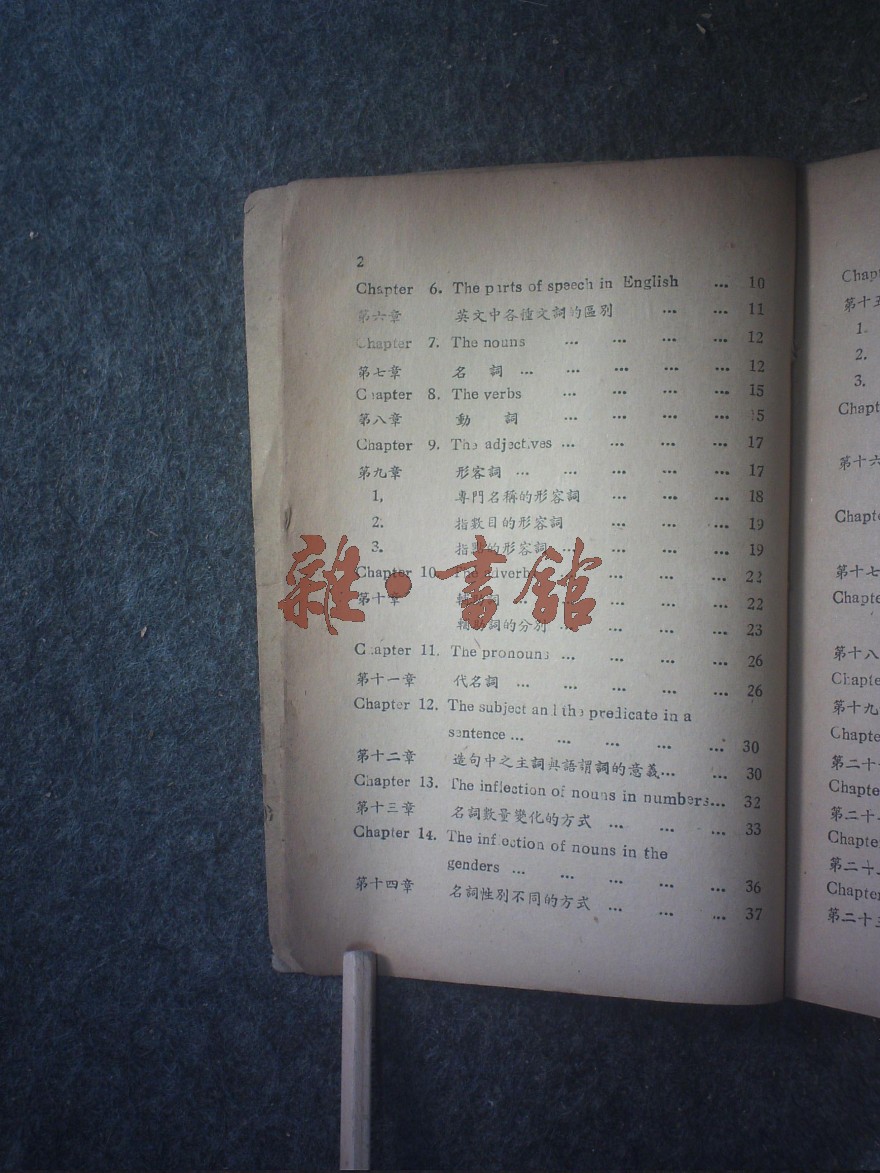 2
Chapter 6. The parts of speech in English ... 10
第六章 英文中各種文詞的區別 ... ... 11
Chapter 7. The nouns ... ... ... ... 12
第七章 名 詞 ... ... ... ... ... 12
Chapter 8. The verbs ... ... ... ... 15
第八章 動 詞 ... ... ... ... 15
Chapter 9. The adjectives ... ... ... ... 17
第九章 形容詞 ... ... ... ... ... 17
1, 專門名稱的形容詞 ... ... ... 18
2. 指數目的形容詞 ... ... ... 19
3. 的形容詞 ... ... ... ... 19
Chapter 10. The adverbs ... ... ... 22
第十章 詞 ... ... ... ... ... 22
輔助詞的分別 ... ... ... ... 23
Chapter 11. The pronouns ... ... ... ... 26
第十一章 代名詞 ... ... ... ... ... 26
Chapter 12. The subject and the predicate in a
sentence ... ... ... ... ... 30
第十二章 造句中之主詞與語謂詞的意義... ... 30
Chapter 13. The inflection of nouns in numbers... 32
第十三章 名詞數量變化的方式 ... ... ... 33
Chapter 14. The inflection of nouns in the
genders ... ... ... ... ... 36
第十四章 名詞性別不同的方式 ... ... ... 37
雜·書館
Chapt
第十五
1.
2.
3.
Chapt
第十六
Chapt
第十七
Chapte
第十八
Chapte
第十九
Chapte
第二十
Chapte
第二十
Chapte
第二十
Chapter
第二十三